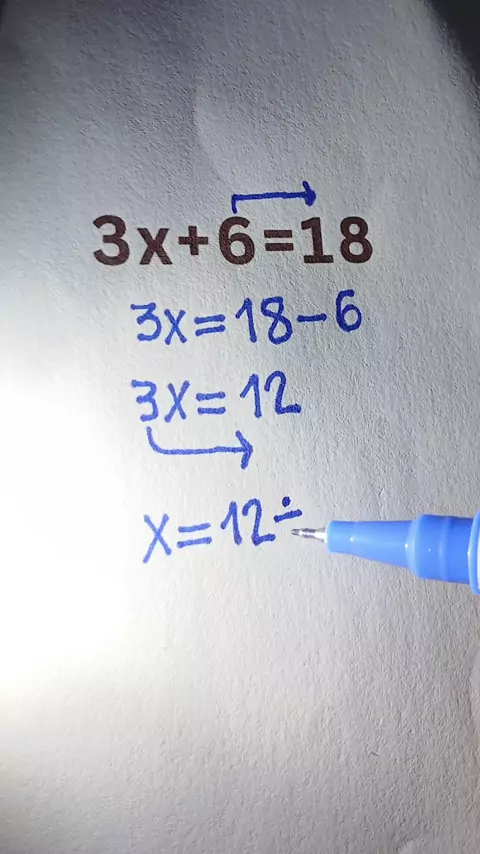 3x+6=18
3x=18-6
3x=12
x=12÷